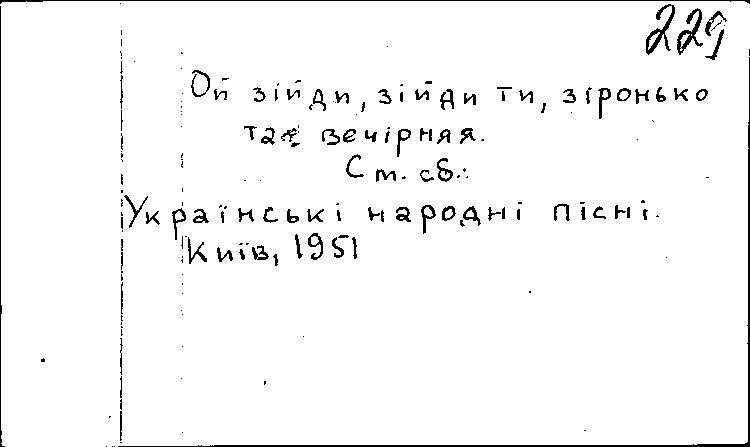 229
Ой зійди, зійди ти, зіронько
та вечірняя.
Ст. сб.:
Українські народні пісні.
Київ, 1951